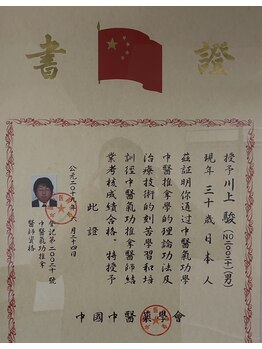 證書
授予川上 駿(NO二〇〇三二)(男)
現年 三十歲日本人
茲証明你通过中醫氣功學
中醫推拿學的理論功法及
治療技術的刻苦學習和培
訓徑中醫氣功推拿醫師結
業考核成績合格。特授予
此 證
登記第二〇〇三二號
中醫氣功推拿
醫師資格
中國中醫藥學會